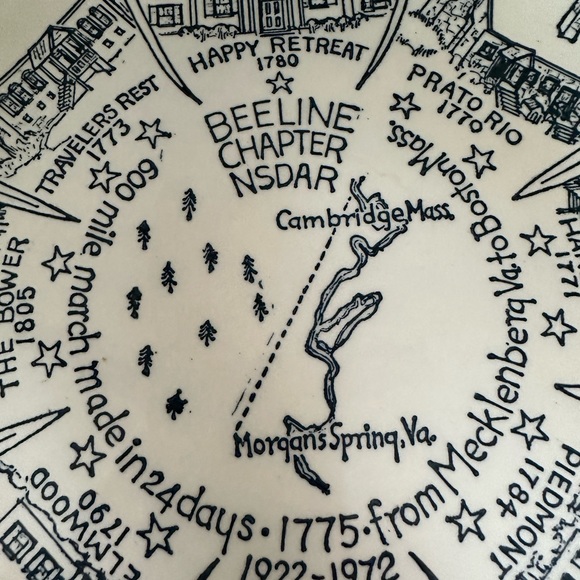 HAPPY RETREAT
1780
PRATO RIO
1770
1771
PIEDMONT
1784
ELMWOOD
1790
THE BOWER
1805
TRAVELERS REST
1773
BEELINE
CHAPTER
NSDAR
600 mile march made in 24 days · 1775 · from Mecklenberg Va. to Boston Mass
Cambridge Mass.
Morgan's Spring, Va.
1922-1972